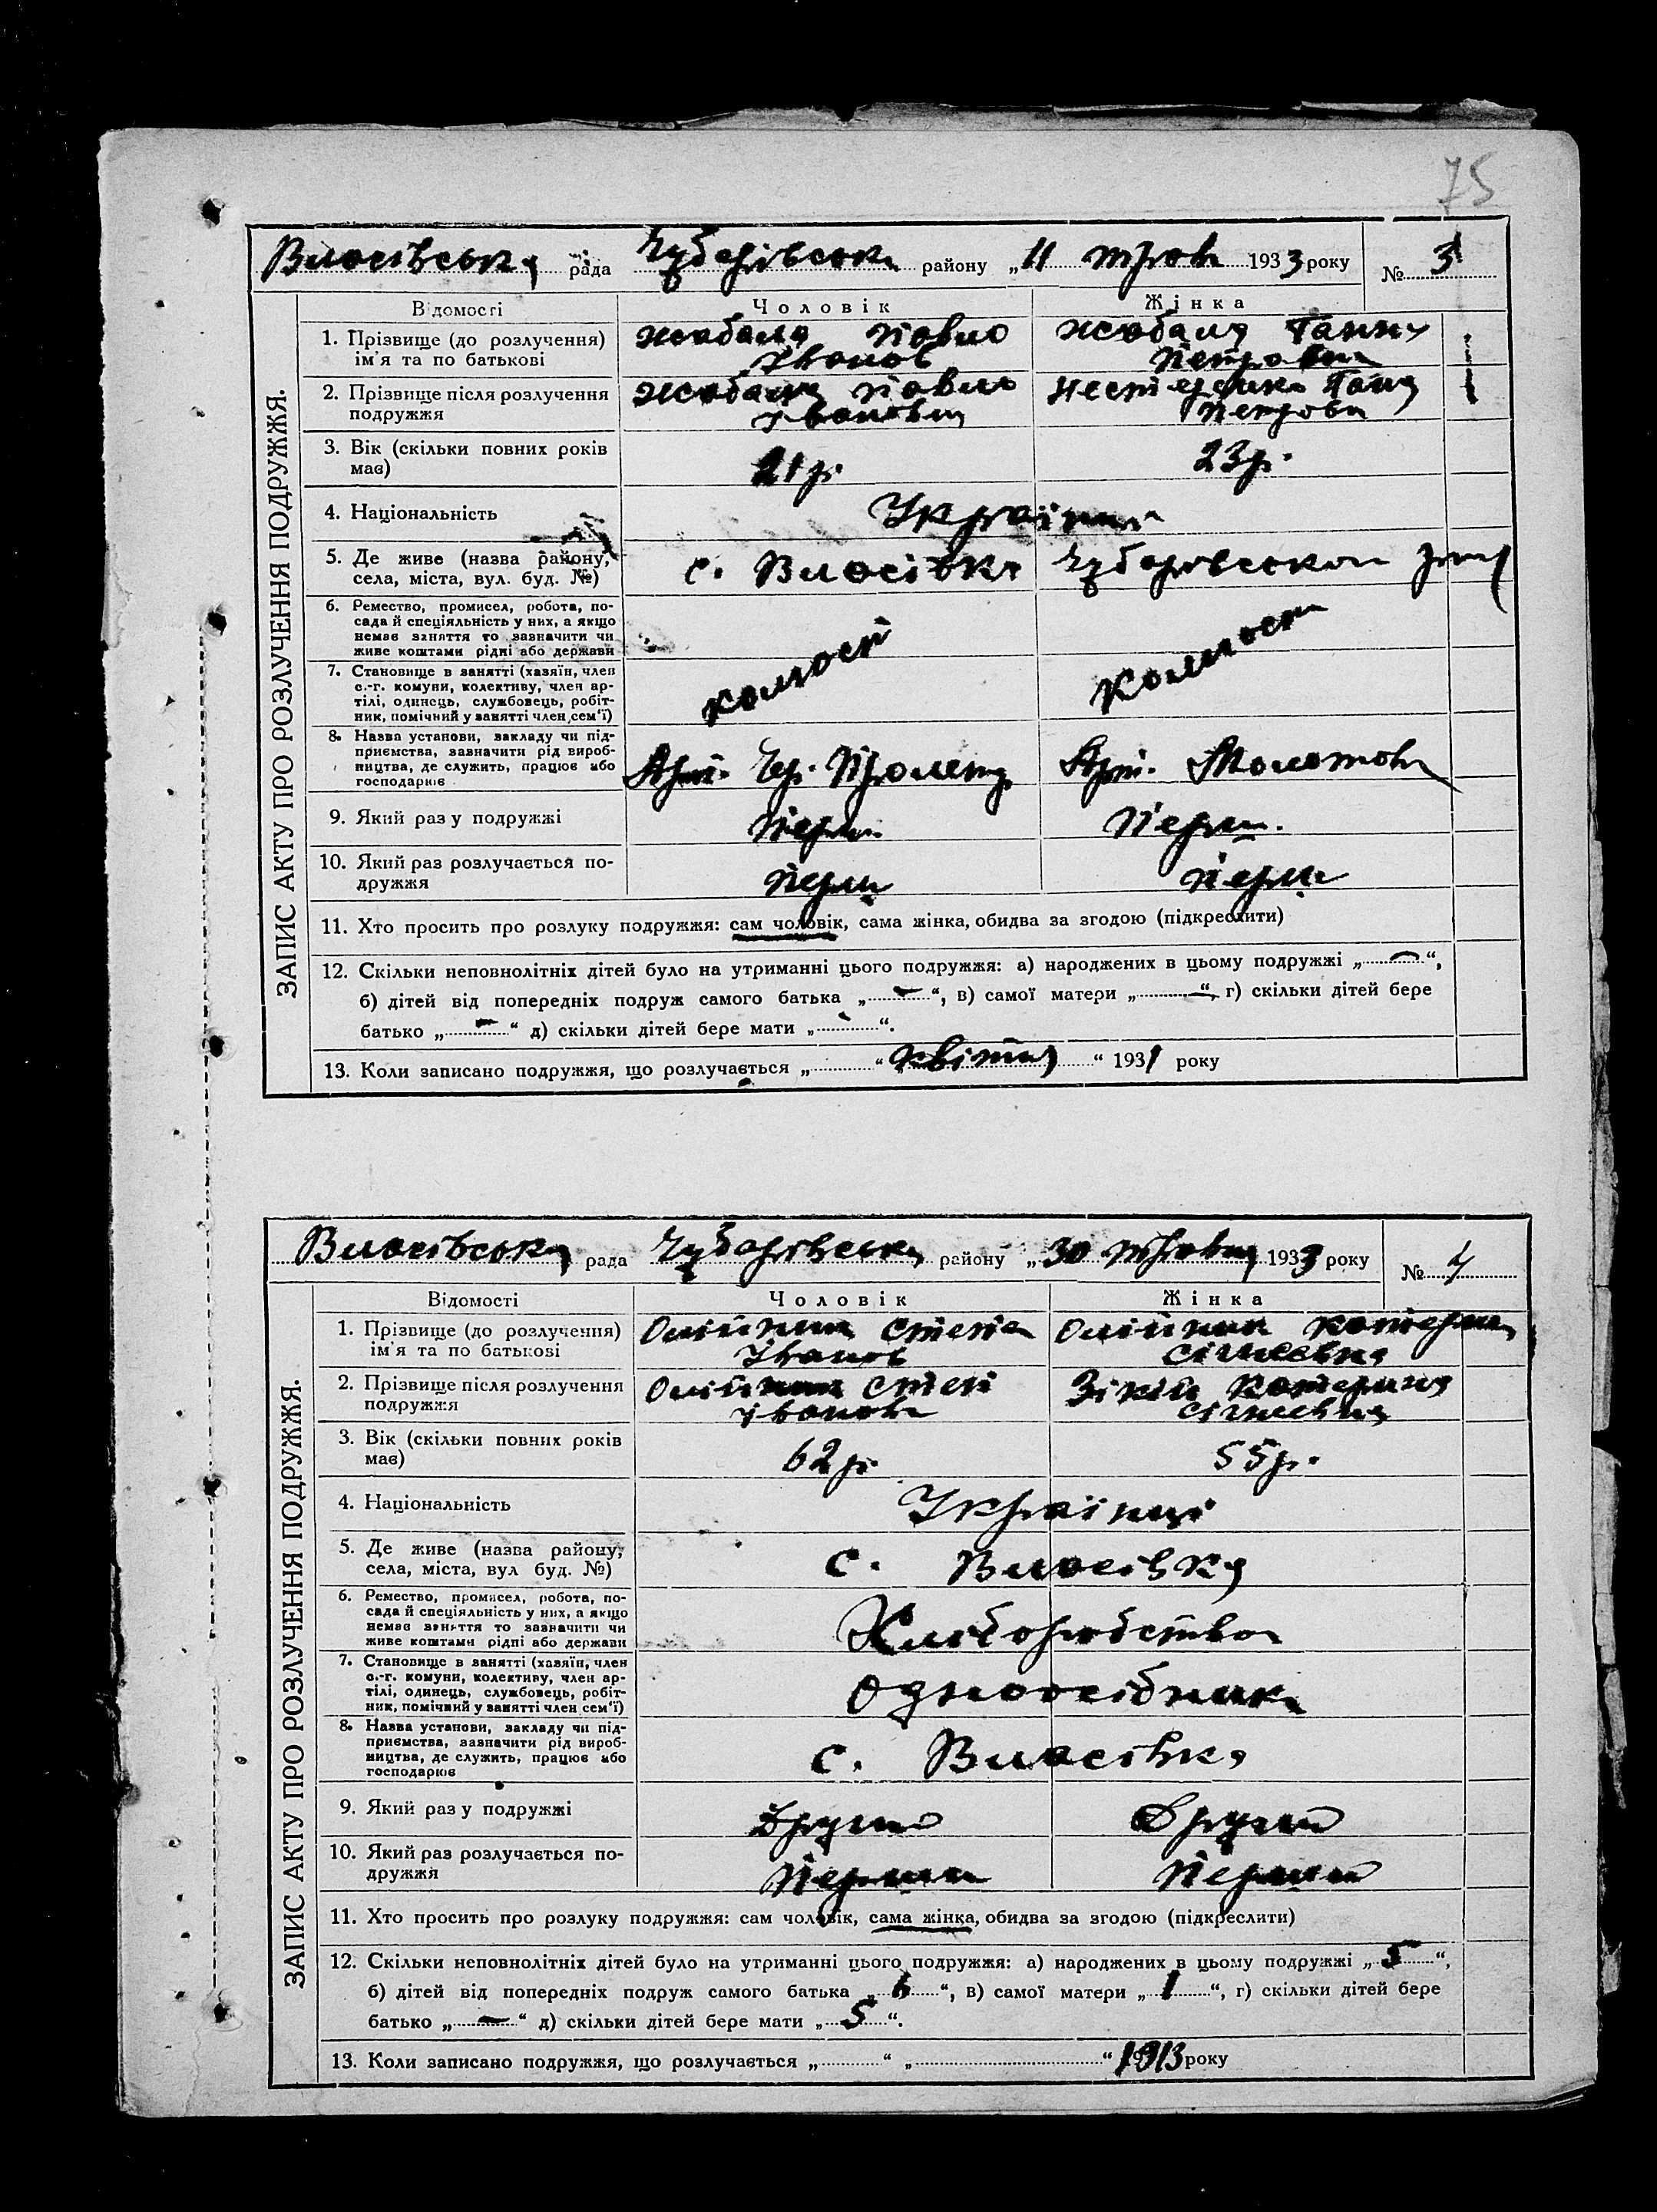 75
Власівська рада Чубарівськ району „11 травн 1933 року № 3
Відомості Чоловік Жінка
ЗАПИС АКТУ ПРО РОЗЛУЧЕННЯ ПОДРУЖЖЯ.
1. Прізвище (до розлучення) Жабала Павло Жабала Ганна
ім'я та по батькові Іванов Петровна
2. Прізвище після розлучення Жабала Павло Нестеренко Ганна
подружжя Іванович Петровн
3. Вік (скільки повних років 21 р. 23 р.
має)
4. Національність
5. Де живе (назва району, с. Власівка
села, міста, вул. буд. №)
6. Ремество, промисел, робота, по-
сада й спеціяльність у них, а якщо
немає заняття то зазначити чи
живе коштами рідні або держави
7. Становище в занятті (хазяїн, член
с.-г. комуни, колективу, член ар-
тілі, одинець, службовець, робіт-
ник, помічний у занятті член сем'ї)
8. Назва установи, закладу чи під-
приємства, зазначити рід вироб-
ництва, де служить, працює або Арт. Чер. Пролетар Арт. Молотова
господарює
9. Який раз у подружжі Перш Перш.
10. Який раз розлучається по- Перш Перш
дружжя
11. Хто просить про розлуку подружжя: сам чоловік, сама жінка, обидва за згодою (підкреслити)
12. Скільки неповнолітніх дітей було на утриманні цього подружжя: а) народжених в цьому подружжі „—“,
б) дітей від попередніх подруж самого батька „—“, в) самої матери „—“, г) скільки дітей бере
батько „—“ д) скільки дітей бере мати „—“.
13. Коли записано подружжя, що розлучається „ “ „квітня“ 1931 року
Власівська рада Чубарівська району „30 травня 1933 року № 4
Відомості Чоловік Жінка
ЗАПИС АКТУ ПРО РОЗЛУЧЕННЯ ПОДРУЖЖЯ.
1. Прізвище (до розлучення) Олійник Степан Олійник Катерина
ім'я та по батькові Іванов
2. Прізвище після розлучення Олійник Степ Зікій Катерина
подружжя Іванов
3. Вік (скільки повних років 62 р. 55 р.
має)
4. Національність Українці
5. Де живе (назва району, с. Власівка
села, міста, вул буд. №)
6. Ремество, промисел, робота, по-
сада й спеціяльність у них, а якщо Хліборобство
немає заняття то зазначити чи
живе коштами рідні або держави
7. Становище в занятті (хазяїн, член
с.-г. комуни, колективу, член ар- Одноосібник
тілі, одинець, службовець, робіт-
ник, помічний у занятті член сем'ї)
8. Назва установи, закладу чи під-
приємства, зазначити рід вироб- с. Власівка
ництва, де служить, працює або
господарює
9. Який раз у подружжі Другий Другий
10. Який раз розлучається по- Перший Перший
дружжя
11. Хто просить про розлуку подружжя: сам чоловік, сама жінка, обидва за згодою (підкреслити)
12. Скільки неповнолітніх дітей було на утриманні цього подружжя: а) народжених в цьому подружжі „5“,
б) дітей від попередніх подруж самого батька „6“, в) самої матери „1“, г) скільки дітей бере
батько „—“ д) скільки дітей бере мати „5“.
13. Коли записано подружжя, що розлучається „ “ „ “ 1913 року